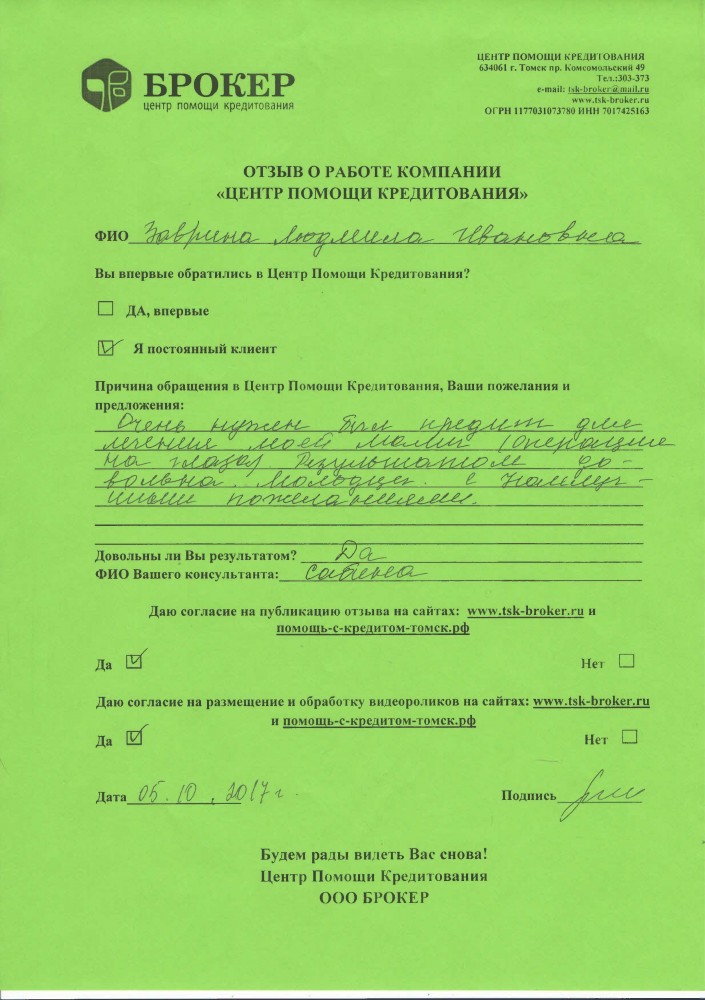 БРОКЕР
центр помощи кредитования
ЦЕНТР ПОМОЩИ КРЕДИТОВАНИЯ
634061 г. Томск пр. Комсомольский 49
Тел.:303-373
e-mail: tsk-broker@mail.ru
www.tsk-broker.ru
ОГРН 1177031073780 ИНН 7017425163
ОТЗЫВ О РАБОТЕ КОМПАНИИ
«ЦЕНТР ПОМОЩИ КРЕДИТОВАНИЯ»
ФИО Заврина Людмила Ивановна
Вы впервые обратились в Центр Помощи Кредитования?
ДА, впервые
Я постоянный клиент
Причина обращения в Центр Помощи Кредитования, Ваши пожелания и
предложения:
Очень нужен был кредит для
лечения моей мамы (операция
на глаза). Результатом до-
вольна. Молодцы. С наилуч-
шими пожеланиями.
Довольны ли Вы результатом? Да
ФИО Вашего консультанта: Сабина
Даю согласие на публикацию отзыва на сайтах: www.tsk-broker.ru и
помощь-с-кредитом-томск.рф
Да Нет
Даю согласие на размещение и обработку видеороликов на сайтах: www.tsk-broker.ru
и помощь-с-кредитом-томск.рф
Да Нет
Дата 05.10.2017г. Подпись
Будем рады видеть Вас снова!
Центр Помощи Кредитования
ООО БРОКЕР